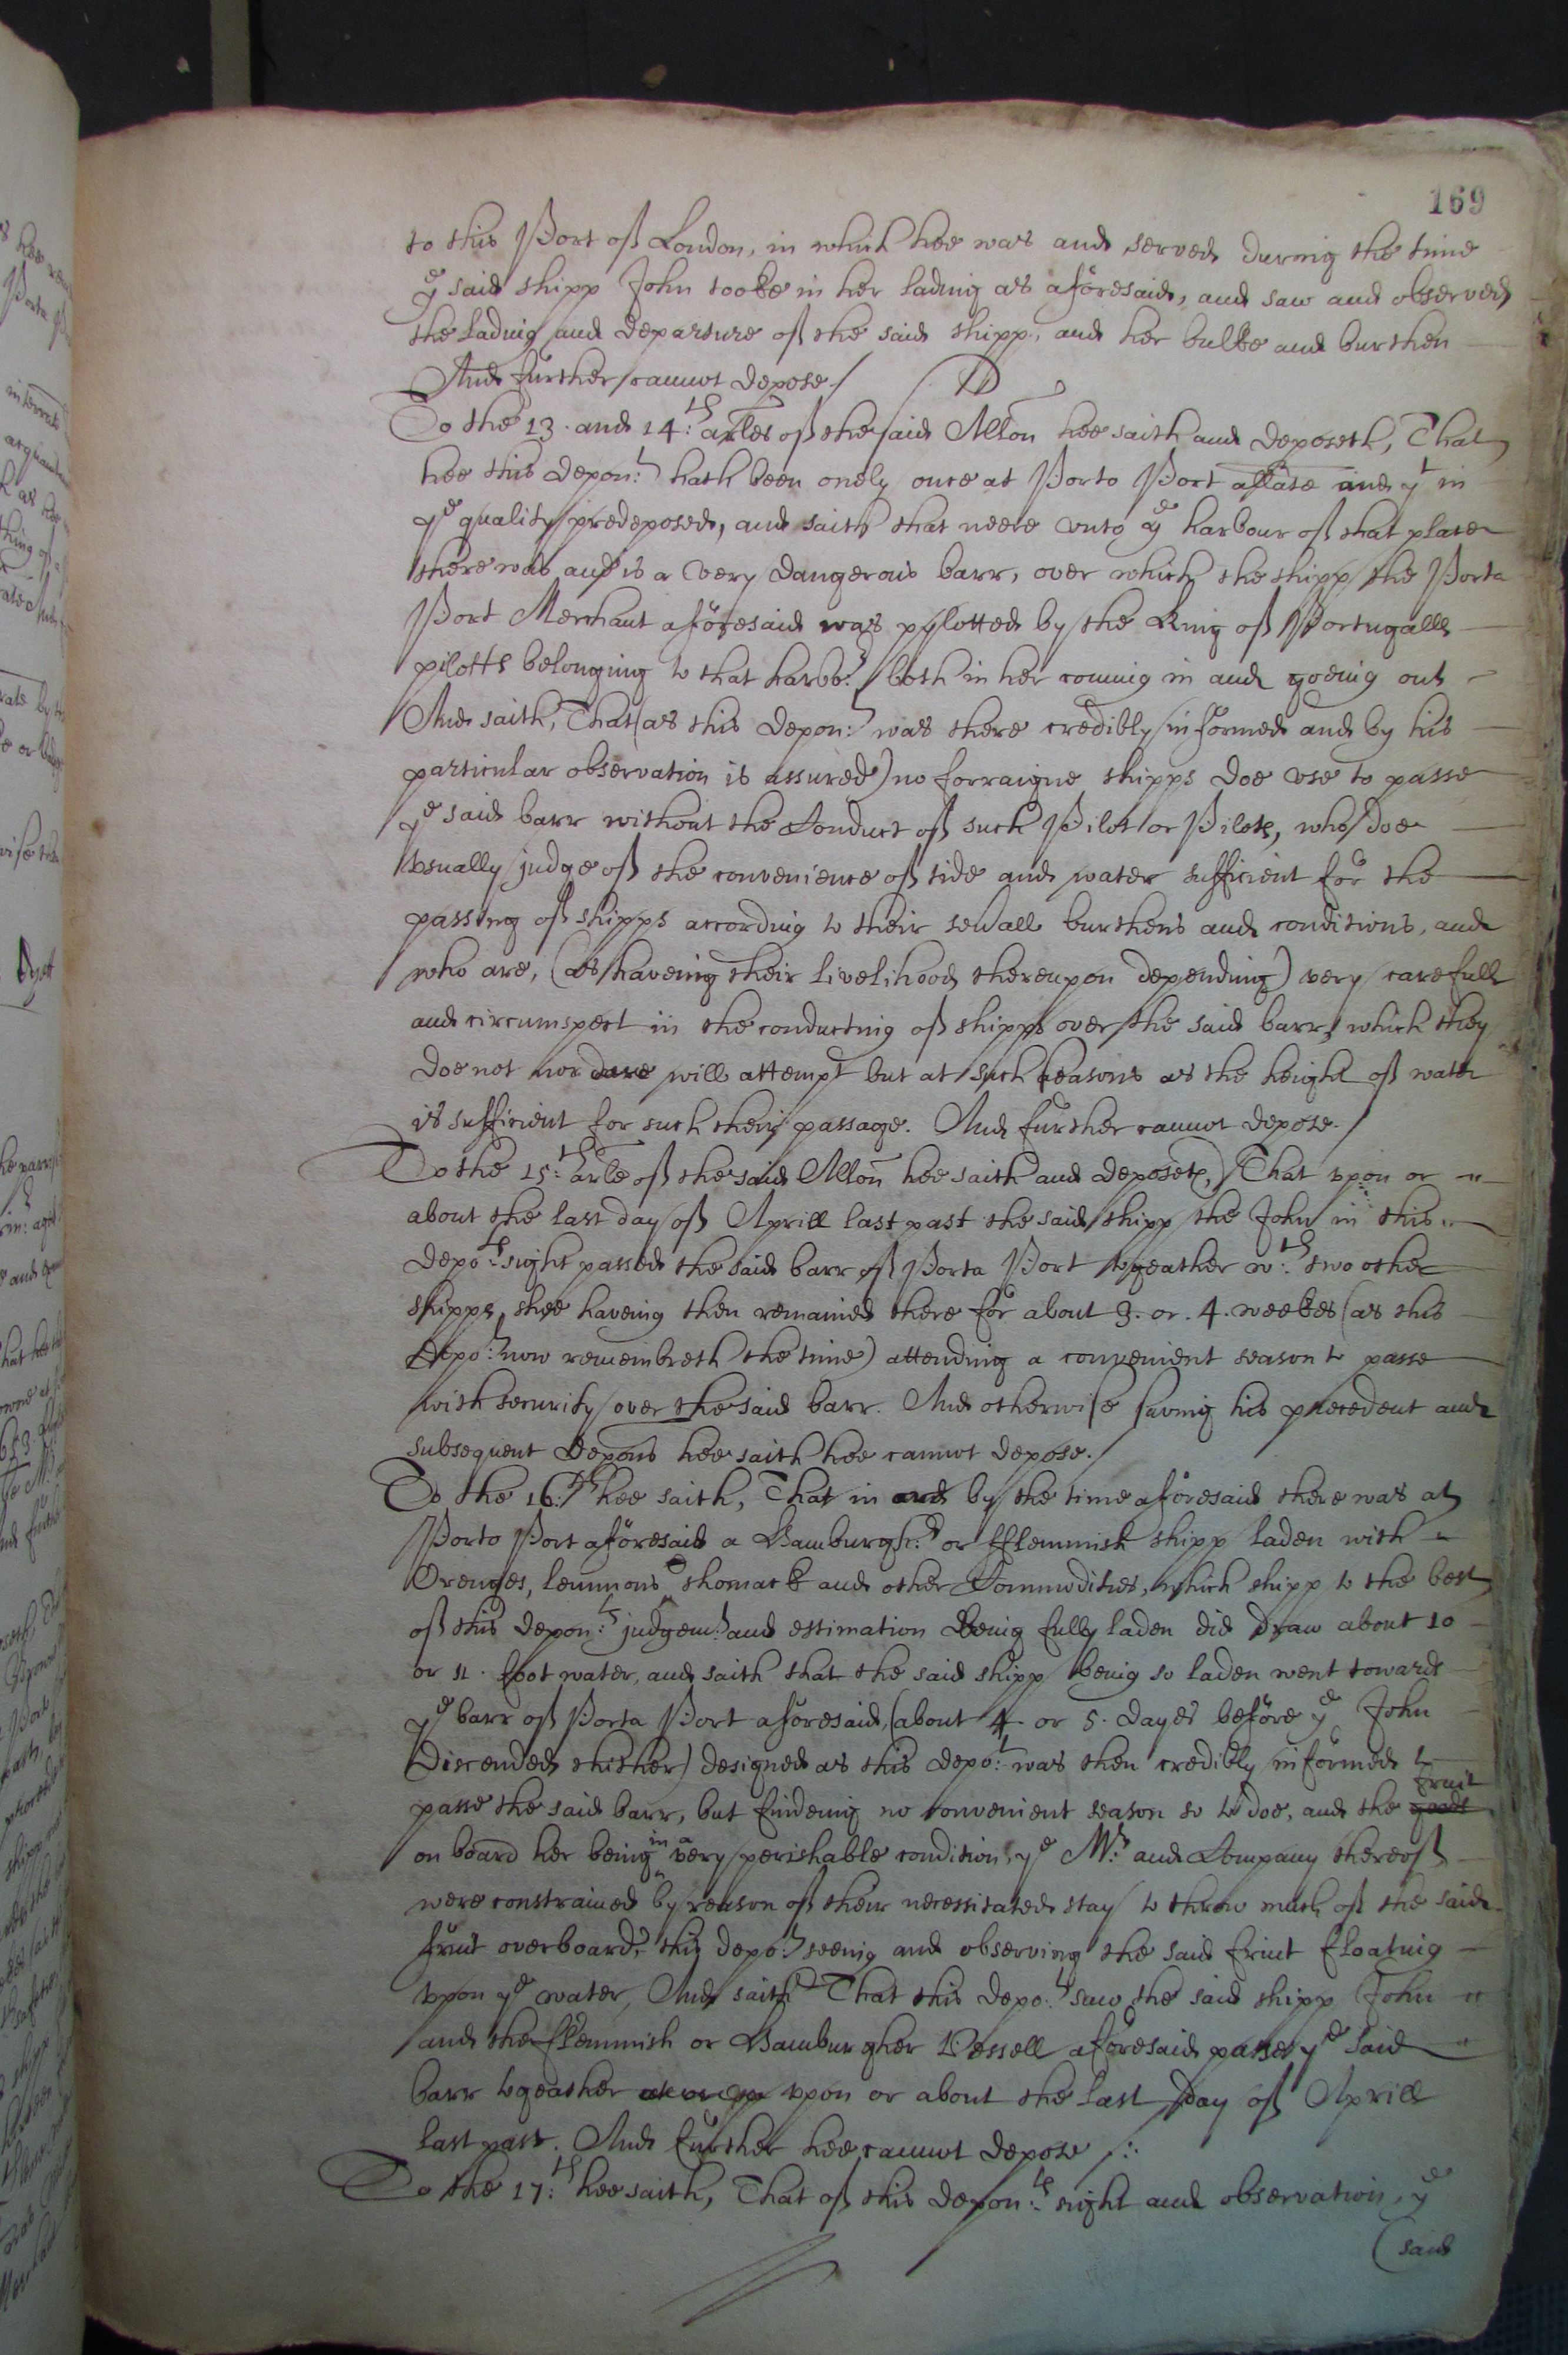 169
to this Port of London, in which hee was and served during the time
ye said shipp John tooke in her lading as aforesaid, and saw and observed
the lading and departure of the said shipp, and her bulke and burthen
And further cannot depose./
To the 13. and 14:th arles of the said Allon hee saith and deposeth, That
hee this depon:t hath been onely once at Porto Port and yt in
ye quality predeposed, and saith that neere vnto ye harbour of that place
there was and is a very dangerous barr, over which the shipp the Porta
Port Merchant aforesaid was pylotted by the King of Portugalls
pilotts belonging to that harbor: both in her coming in and goeing out
And saith, That (as this depon:t was there credibly informed and by his
particular observation is assured) no forraigne shipps doe vse to passe
ye said barr without the Conduct of such Pilot or Pilots, who doe
vsually judge of the convenience of tide and water sufficient for the
passing of shipps according to their seuall burthens and conditions, and
who are, (as haveing their livelihood thereupon depending) very carefull
and circumspect in the conducting of shipps over the said barr, which they
doe not nor dare will attempt but at such seasons as the height of water
is sufficient for such their passage. And further cannot depose./
To the 15:th arle of the said Allon hee saith and deposeth, That vpon or
about the last day of Aprill last past the said shipp the John in this
depo:ts sight passed the said barr of Porta Port togeather w:th two other
shipps, shee haveing then remained there for about 3. or. 4. weekes (as this
depo:t now remembreth the time) attending a convenient season to passe
with security over the said barr. And otherwise saving his precedent and
subsequent depons hee saith hee cannot depose./
To the 16:th hee saith, That in and by the time aforesaid there was at
Porto Port aforesaid a Hamburgh:r or fflemmish shipp laden with
Orenges, lemmons shomack and other Commodities, which shipp to the best
of this depon:ts judgem:t and estimation being fully laden did draw about 10
or 11. foot water, and saith that the said shipp being so laden went towards
ye barr of Porta Port aforesaid, (about 4. or 5. dayes before ye John
discended thither) designed as this depo:t was then credibly informed to
passe the said barr, but findeing no convenient season so to doe, and the goods fruit
on board her being in a very perishable condition, ye Mr: and Company thereof
were constrained by reason of their necessitated stay to throw much of the said
fruit overboard, this depo:t seeing and observing the said fruit floating
vpon ye water, And saith That this depo:t saw the said shipp John
and the fflemmish or Hamburgher Vessell aforesaid passe ye said
barr togeather vpon or about the last day of Aprill
last past. And further hee cannot depose /:
To the 17:th hee saith, That of this depon:ts sight and observation, ye
(said